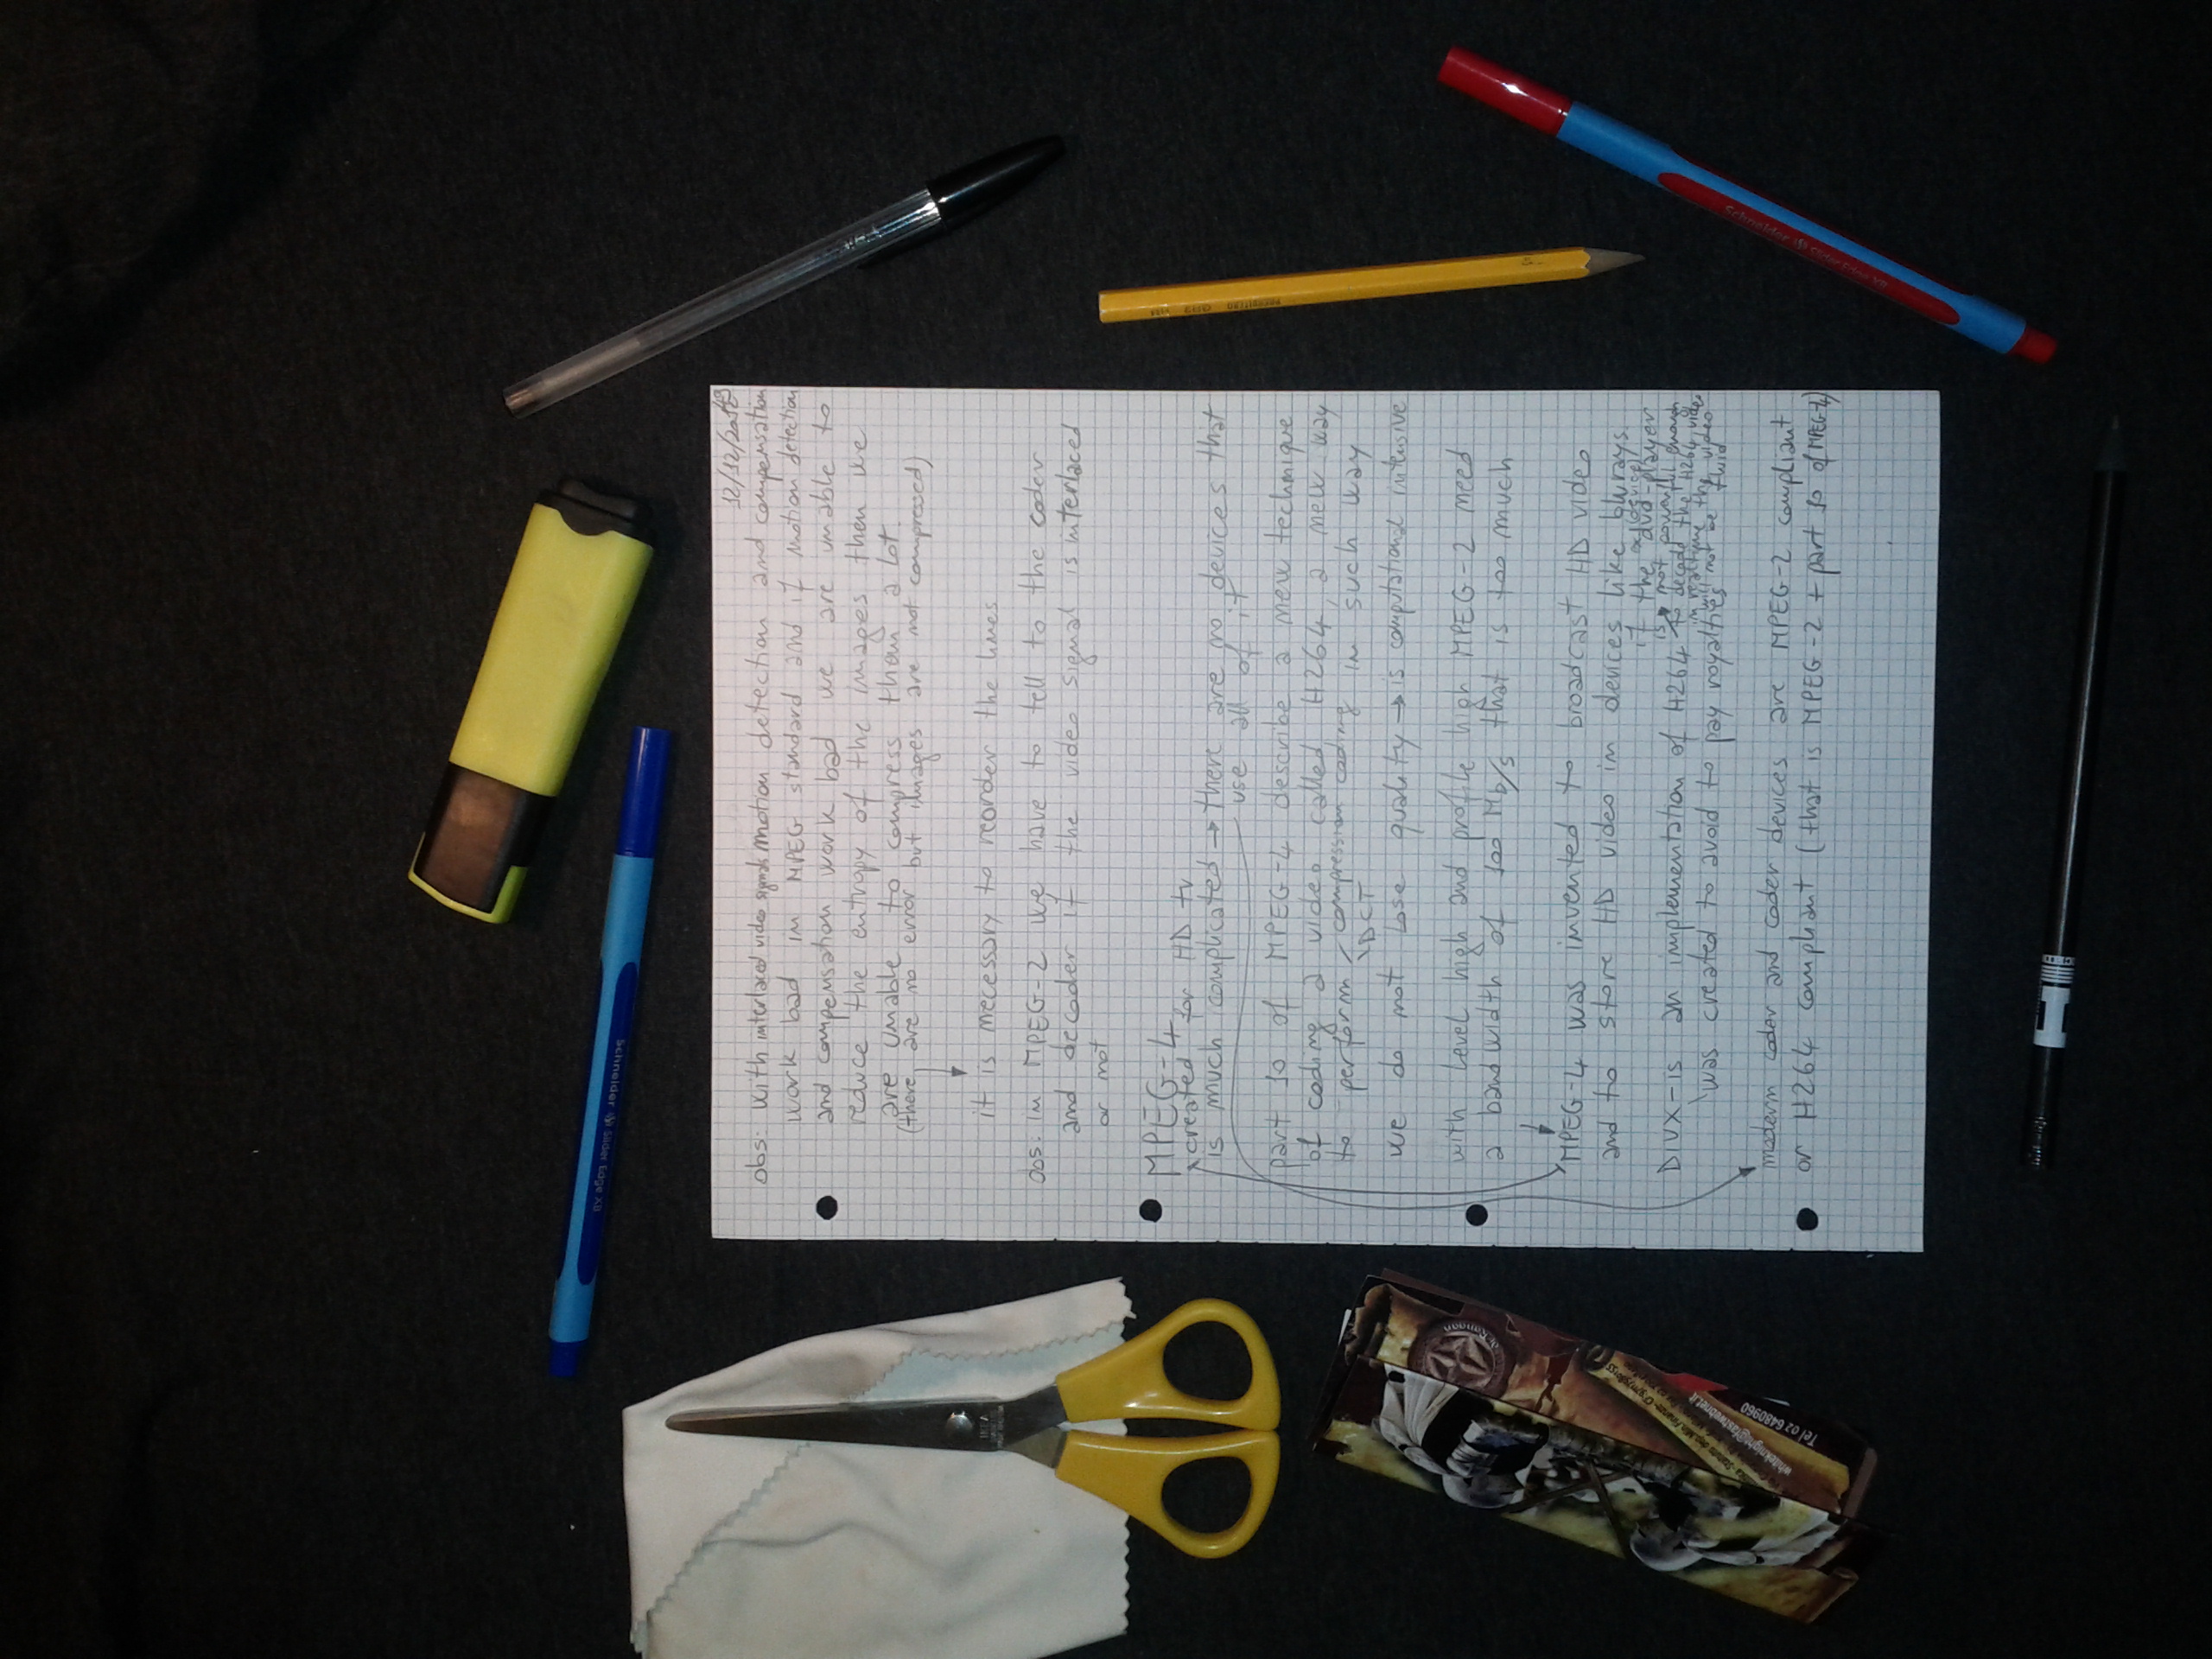 12/12/2012
obs: with interlaced video signals motion detection and compensation
work bad in MPEG standard and if motion detection
and compensation work bad we are unable to
reduce the entropy of the images then we
are unable to compress them a lot
(there are no error but images are not compressed)
it is necessary to reorder the lines
obs: in MPEG-2 we have to tell to the coder
and decoder if the video signal is interlaced
or not
MPEG-4
created for HD tv
is much complicated → there are no devices that
use all of it
part 10 of MPEG-4 describe a new technique
of coding a video called H264, a new way
to perform compression coding in such way
DCT
we do not lose quality → is computational intensive
with level high and profile high MPEG-2 need
a bandwidth of 100 Mb/s that is too much
MPEG-4 was invented to broadcast HD video
and to store HD video in devices like blurays.
DIVX - is an implementation of H264
if the dvd-player
is not powerful enough
to decode the H264 video
in realtime the video
will not be fluid
was created to avoid to pay royalties
modern coder and coder devices are MPEG-2 compliant
or H264 compliant (that is MPEG-2 + part 10 of MPEG-4)
Schneider Slider Edge XB
Schneider Slider Edge XB
whiteknight@fastwebnet.it
Tel 02 6480960